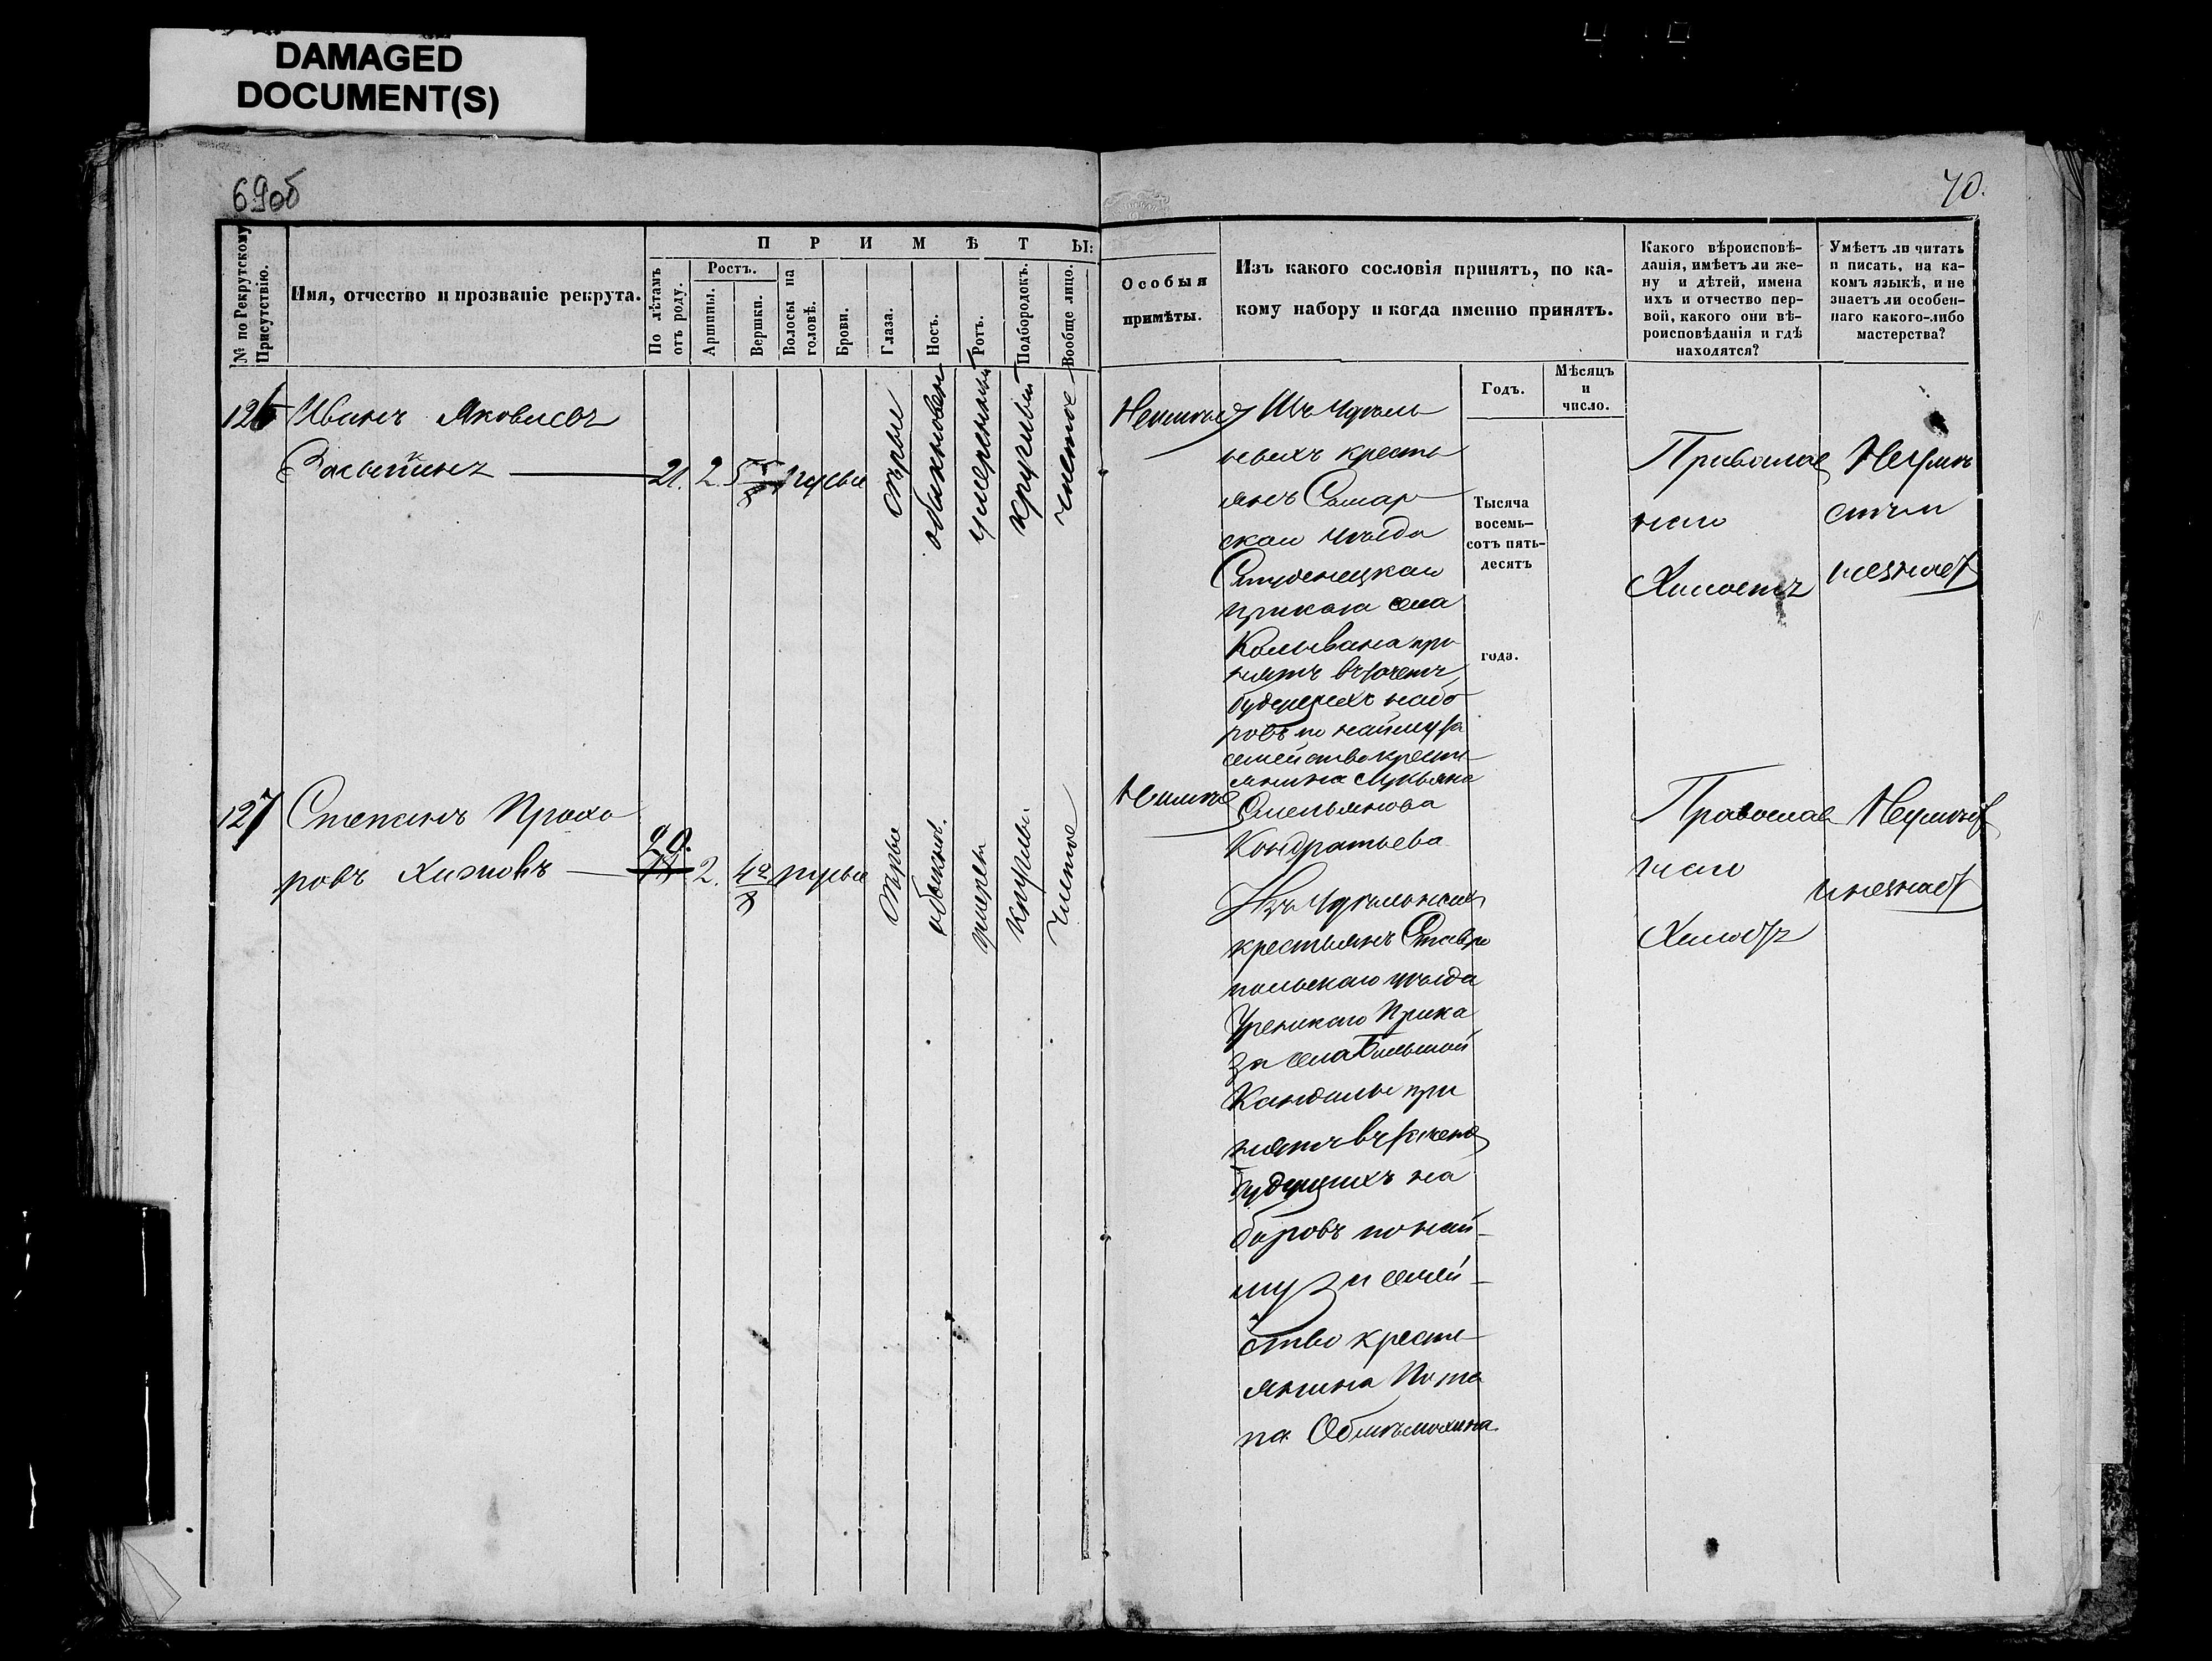 DAMAGED
DOCUMENT(S)
69об
70.
№ по Рекрутскому
Присутствію.
Имя, отчество и прозваніе рекрута.
ПРИМѢТЫ:
По лѣтамъ
отъ роду.
Ростъ.
Аршины.
Вершки.
Волосы на
головѣ.
Брови.
Глаза.
Носъ.
Ротъ.
Подбородокъ.
Вообще лицо.
Особыя
примѣты.
Изъ какого сословія принятъ, по ка-
кому набору и когда именно принятъ.
Годъ.
Мѣсяцъ
и
число.
Какого вѣроисповѣ-
данія, имѣетъ ли же-
ну и дѣтей, имена
ихъ и отчество пер-
вой, какого они вѣ-
роисповѣданія и гдѣ
находятся?
Умѣетъ ли читать
и писать, на ка-
комъ языкѣ, и не
знаетъ ли особен-
наго какого-либо
мастерства?
126
Иванъ Яковлевъ
21. 2. 5 русые
сѣрые
обыкновен
умеренный
круглый
чистое
Изъ удѣль
ныхъ кресть
янъ Самар
скаго уѣзда
Студенецкаго
приказа села
Колывана при
нятъ въ зачетъ
будущихъ набо
ровъ по найму за
семейство кресть
янина Лукьяна
Емельянова
Кондратьева
Тысяча
восемь-
сотъ пять-
десятъ
года.
Православ
наго
Холостъ
Неумѣ
етъ и
незнает
127
Степанъ Прохо
ровъ
20.
2. 4 русые
сѣрые
обыкнов.
умерен
круглы
чистое
Изъ удѣльныхъ
крестьянъ Ставро
польскаго уѣзда
Прика
за села Большой
Кандалы при
нятъ въ зачетъ
будущихъ на
боровъ по най
му за семей
ство кресть
янина Пота
па
Православ
наго
Холостъ
Неумѣет
и незнает